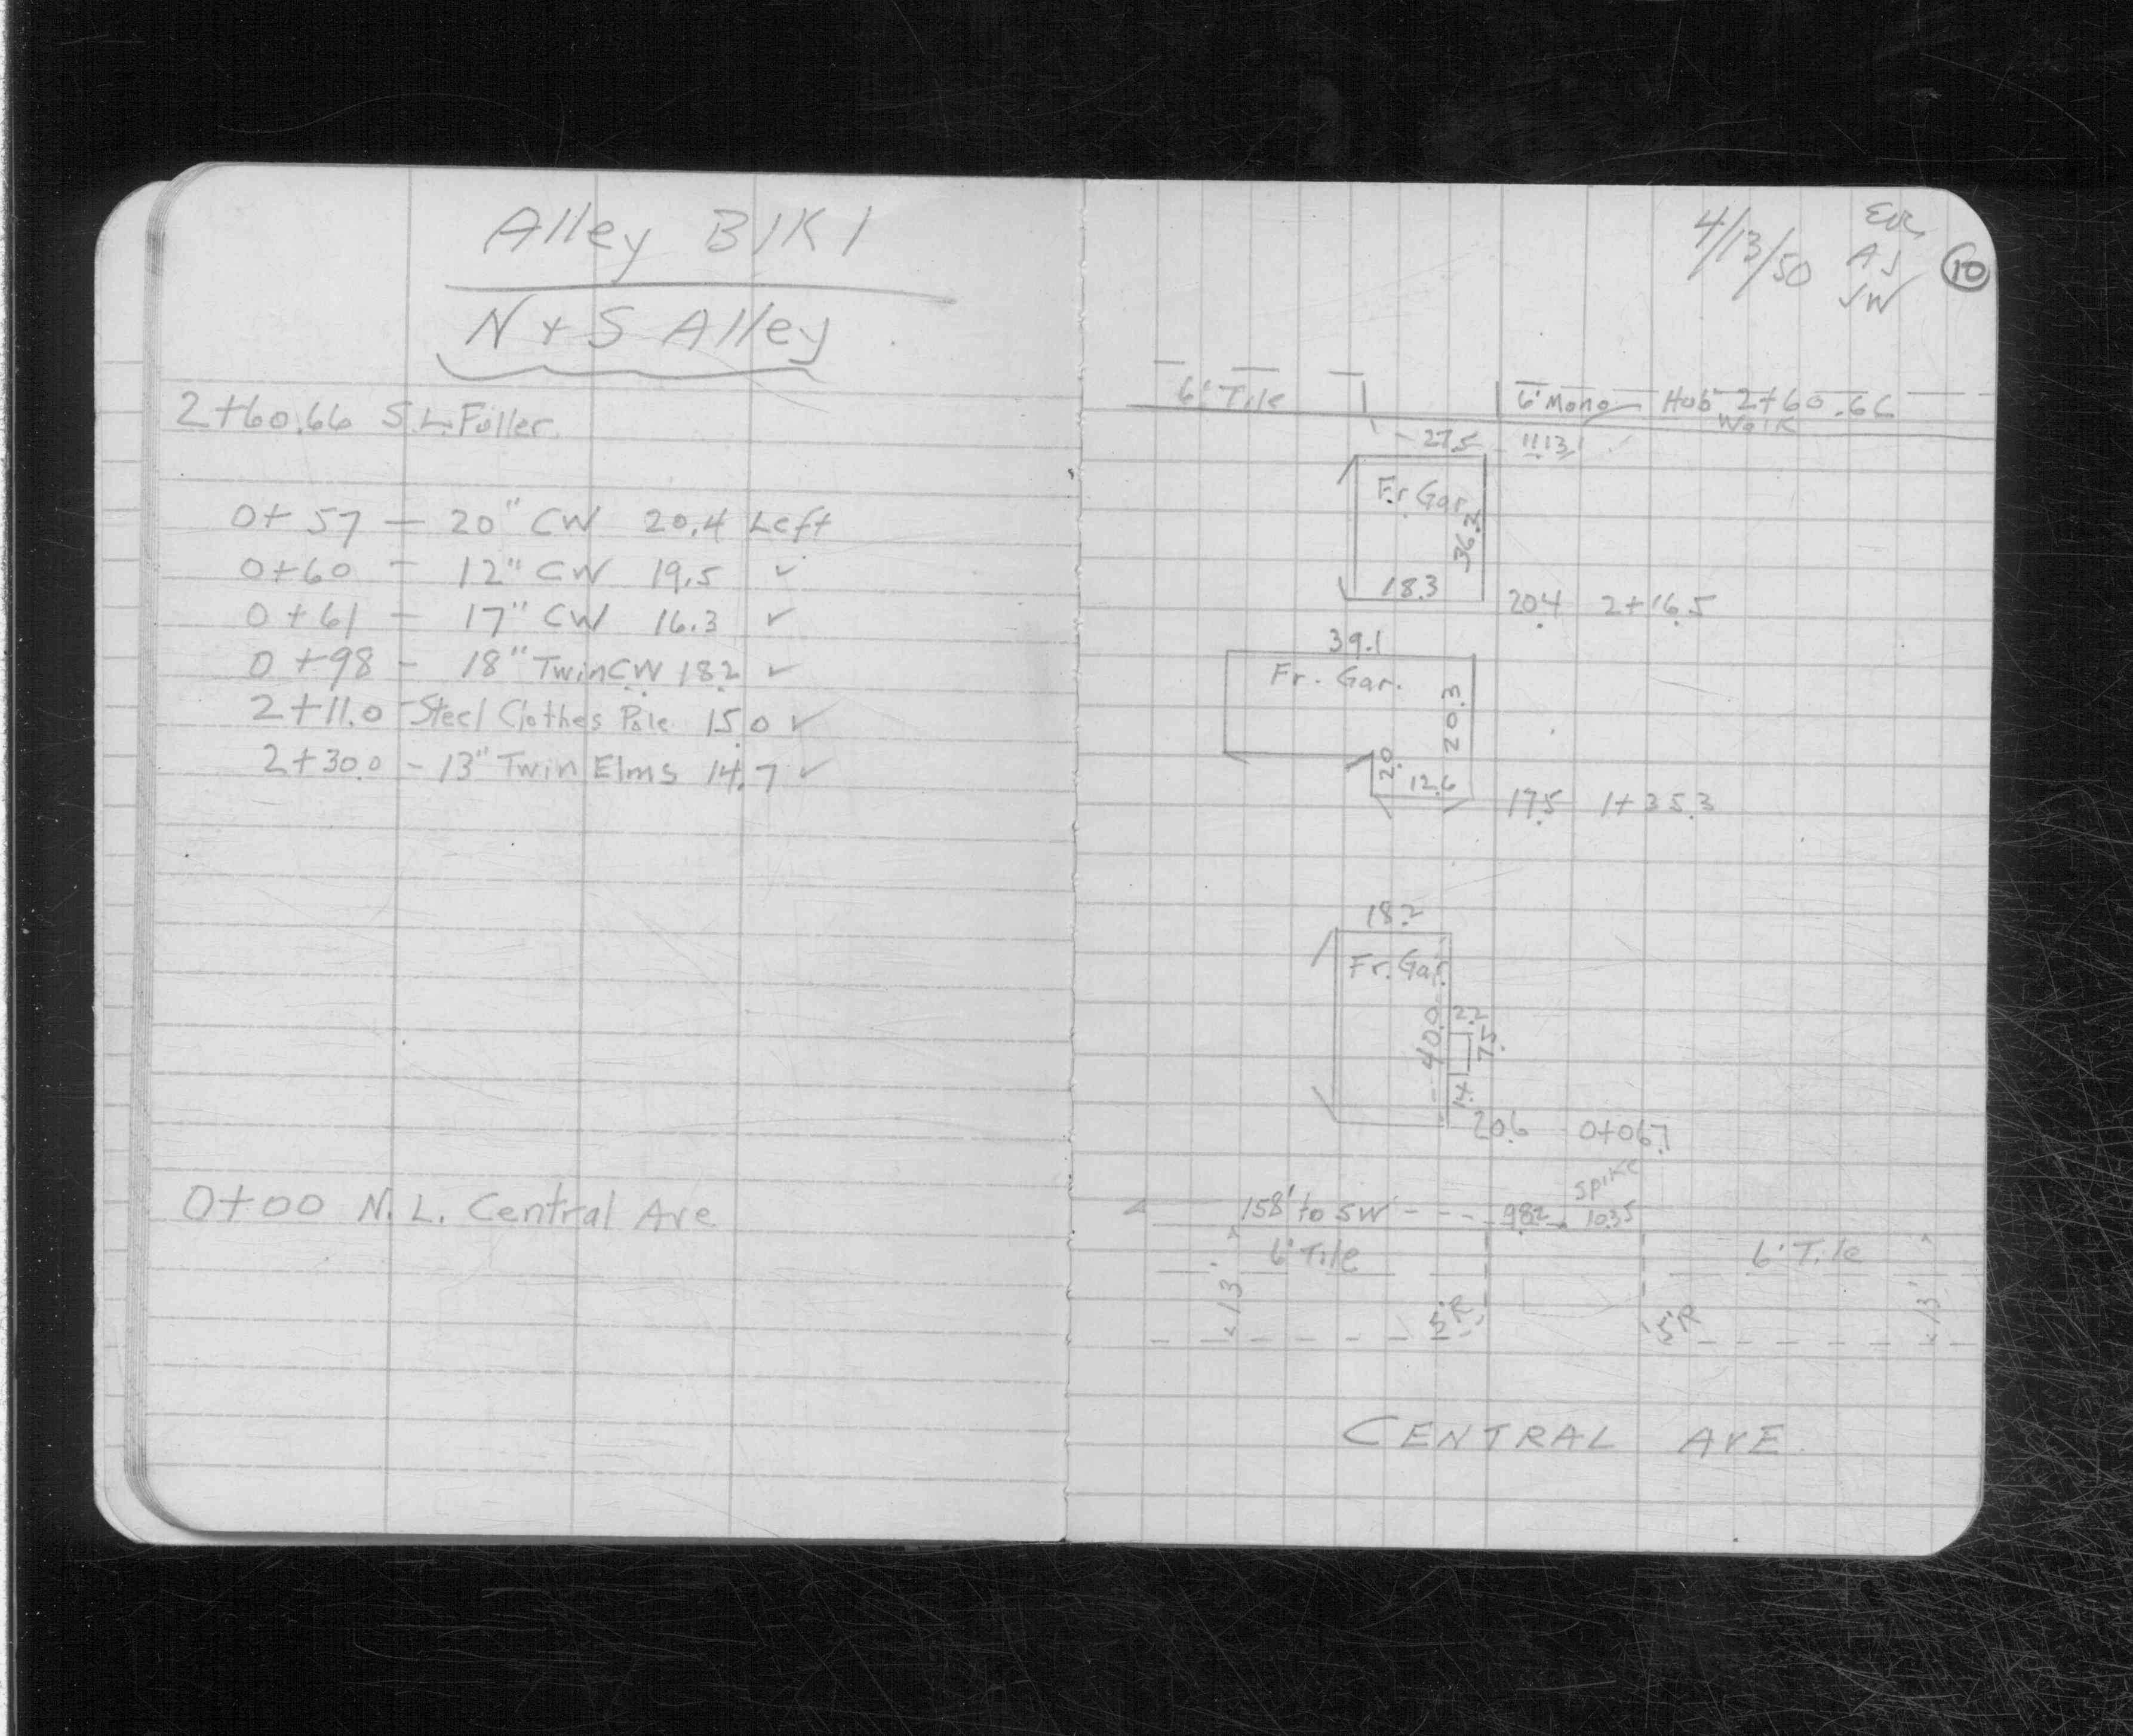 Alley Blk 1
N + S Alley
2+60.66 S.L. Fuller
0+57 — 20" CW 20.4 Left
0+60 - 12" CW 19.5 ✓
0+61 - 17" CW 16.3 ✓
0+98 - 18" Twin CW 18.2 ✓
2+11.0 - Steel Clothes Pole 15.0 ✓
2+30.0 - 13" Twin Elms 14.7 ✓
0+00 N.L. Central Ave
4/13/50
AJ
JW
10
6' Tile
6' Mono Walk
Hub 2+60.66
27.5
Fr. Gar.
36.2
18.3
20.4 2+16.5
39.1
Fr. Gar.
20.3
2.0
12.6
17.5 1+35.3
18.2
Fr. Gar.
40.0
2.2
7.5
14
20.6 0+06.7
Spike
158' to SW
9.82
10.35
6' Tile
6' Tile
13'
13'
5'R
5'R
CENTRAL AVE.